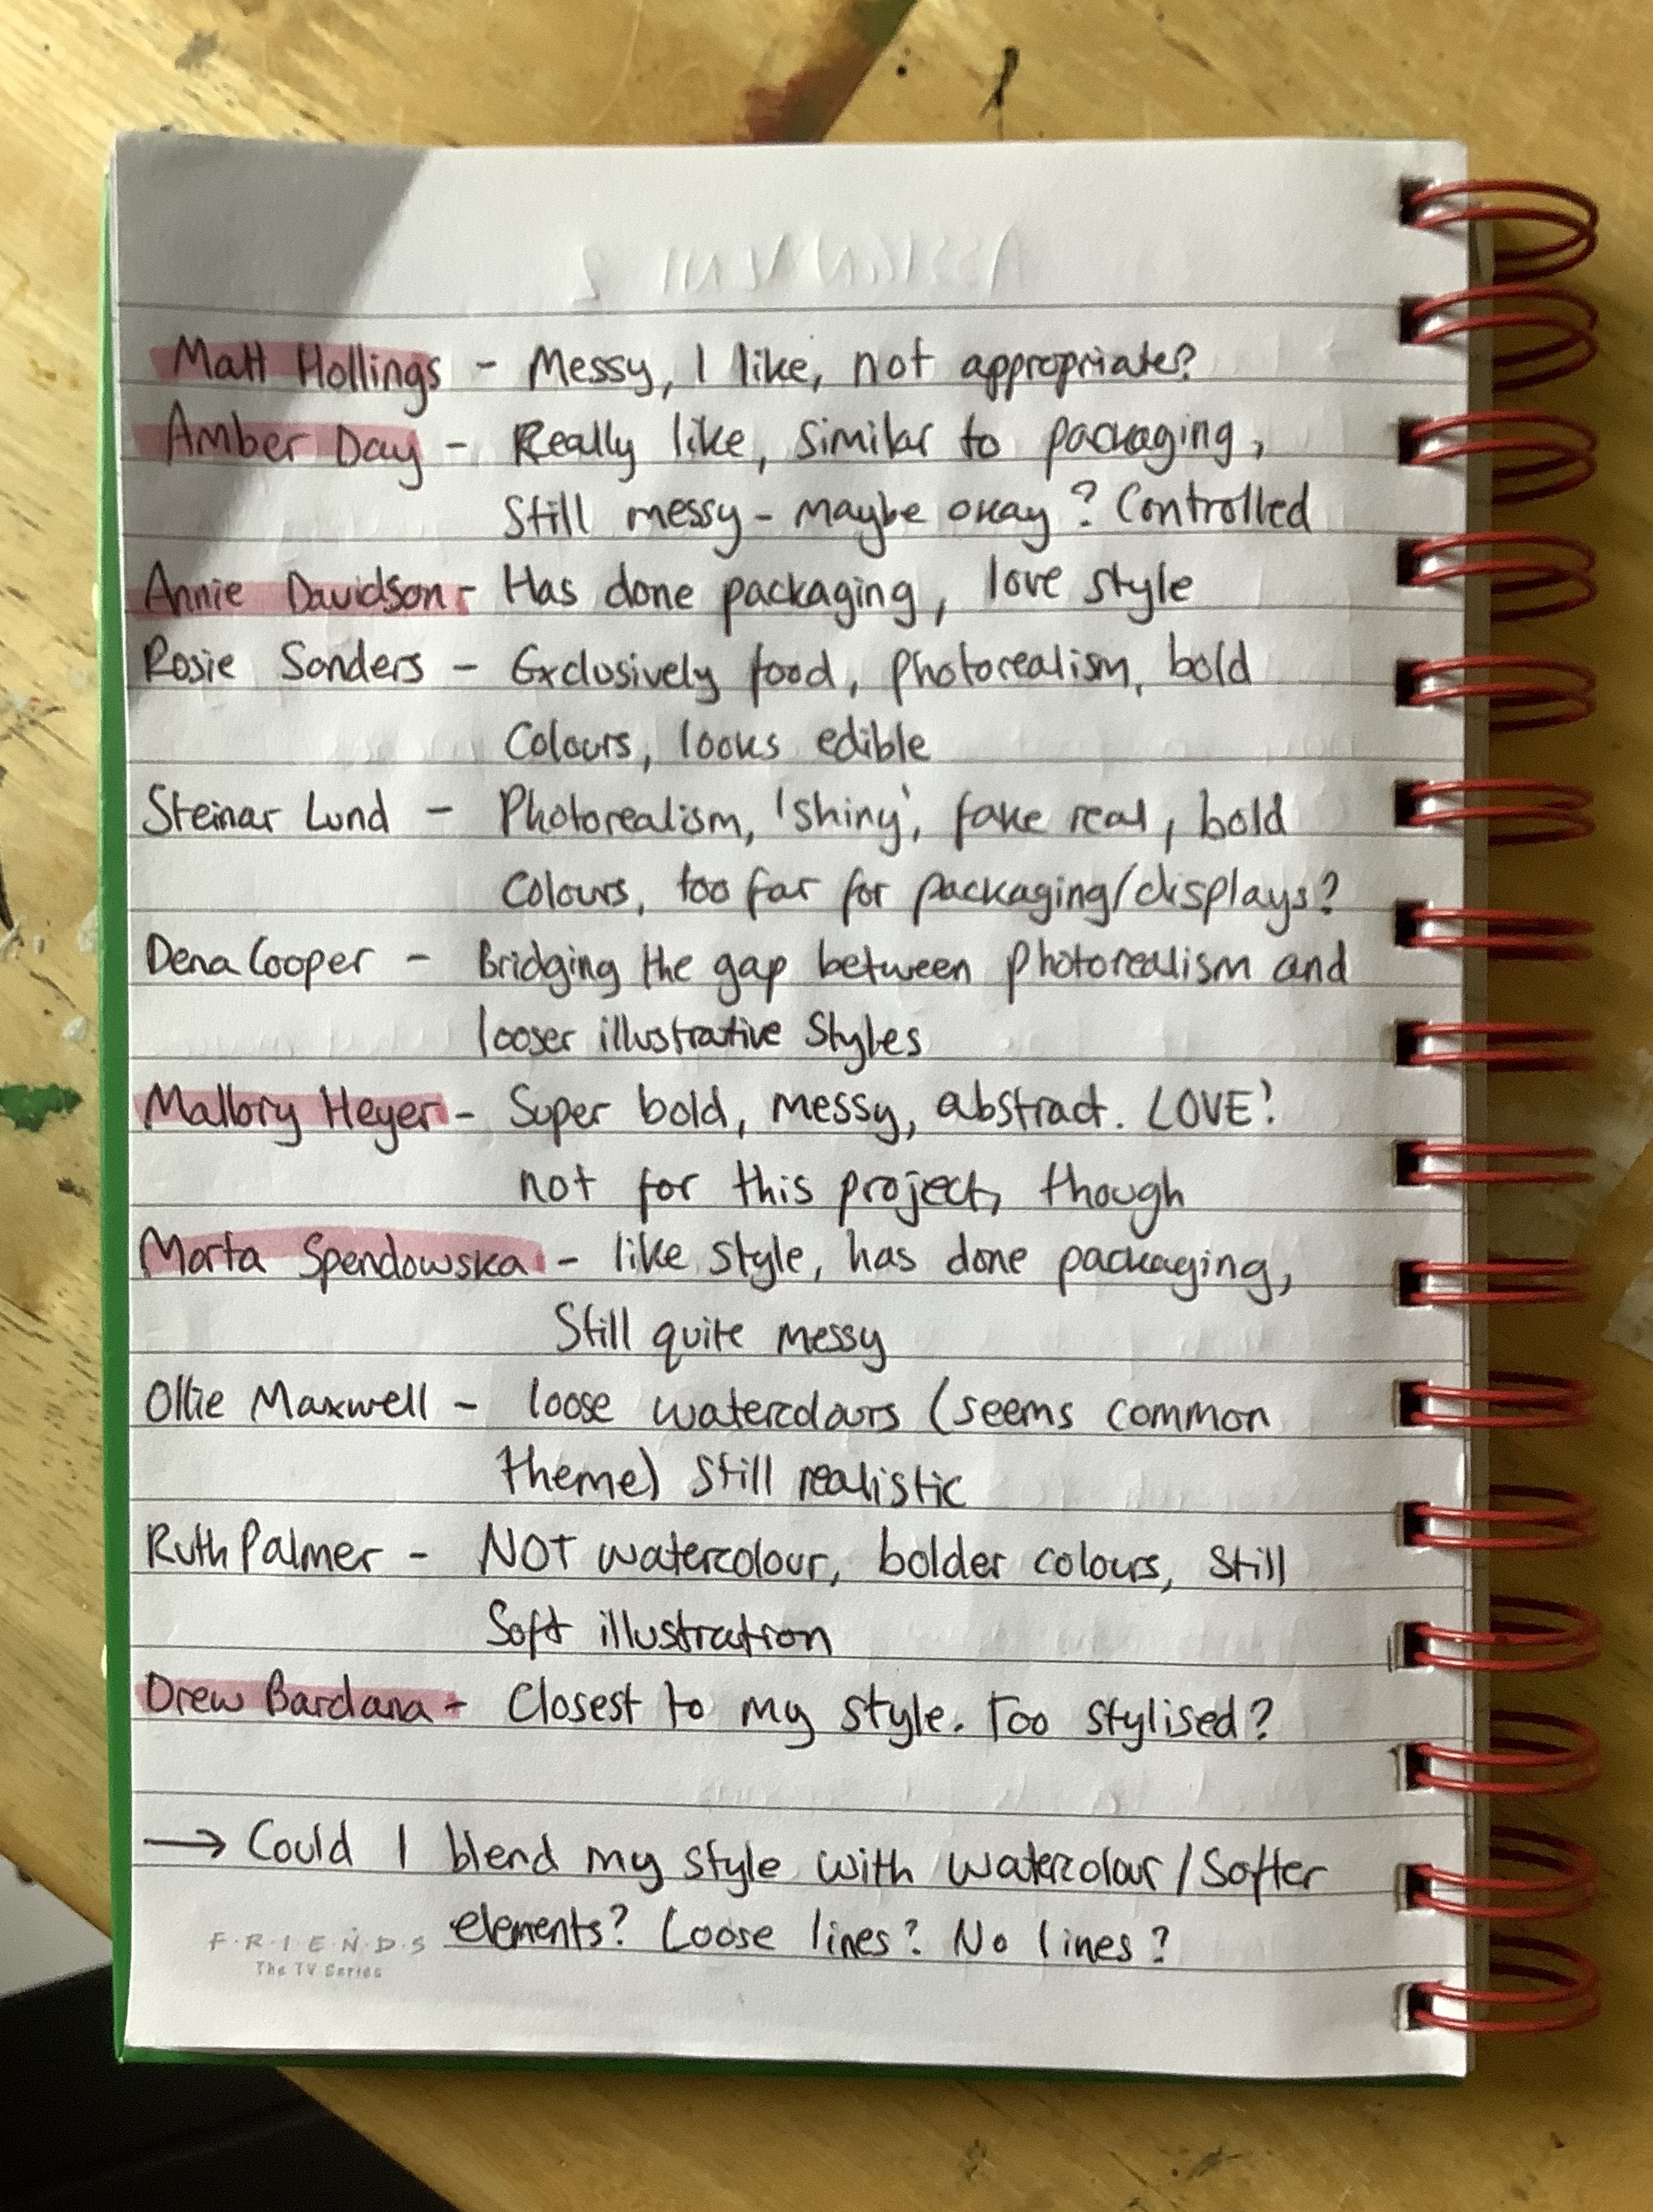 Matt Hollings - Messy, I like, not appropriate?
Amber Day - Really like, similar to packaging,
Still messy - maybe okay? Controlled
Annie Davidson - Has done packaging, love style
Rosie Sanders - Exclusively food, photorealism, bold
Colours, looks edible
Steinar Lund - Photorealism, 'shiny', fake real, bold
Colours, too far for packaging/displays?
Dena Cooper - Bridging the gap between photorealism and
looser illustrative styles
Mallory Heyer - Super bold, messy, abstract. LOVE!
not for this project, though
Marta Spendowska - like style, has done packaging,
Still quite messy
Ollie Maxwell - loose watercolours (seems common
theme) still realistic
Ruth Palmer - NOT watercolour, bolder colours, still
Soft illustration
Drew Bardana - Closest to my style. Too stylised?
→ Could I blend my style with watercolour/softer
elements? Loose lines? No lines?
F·R·I·E·N·D·S
The TV Series